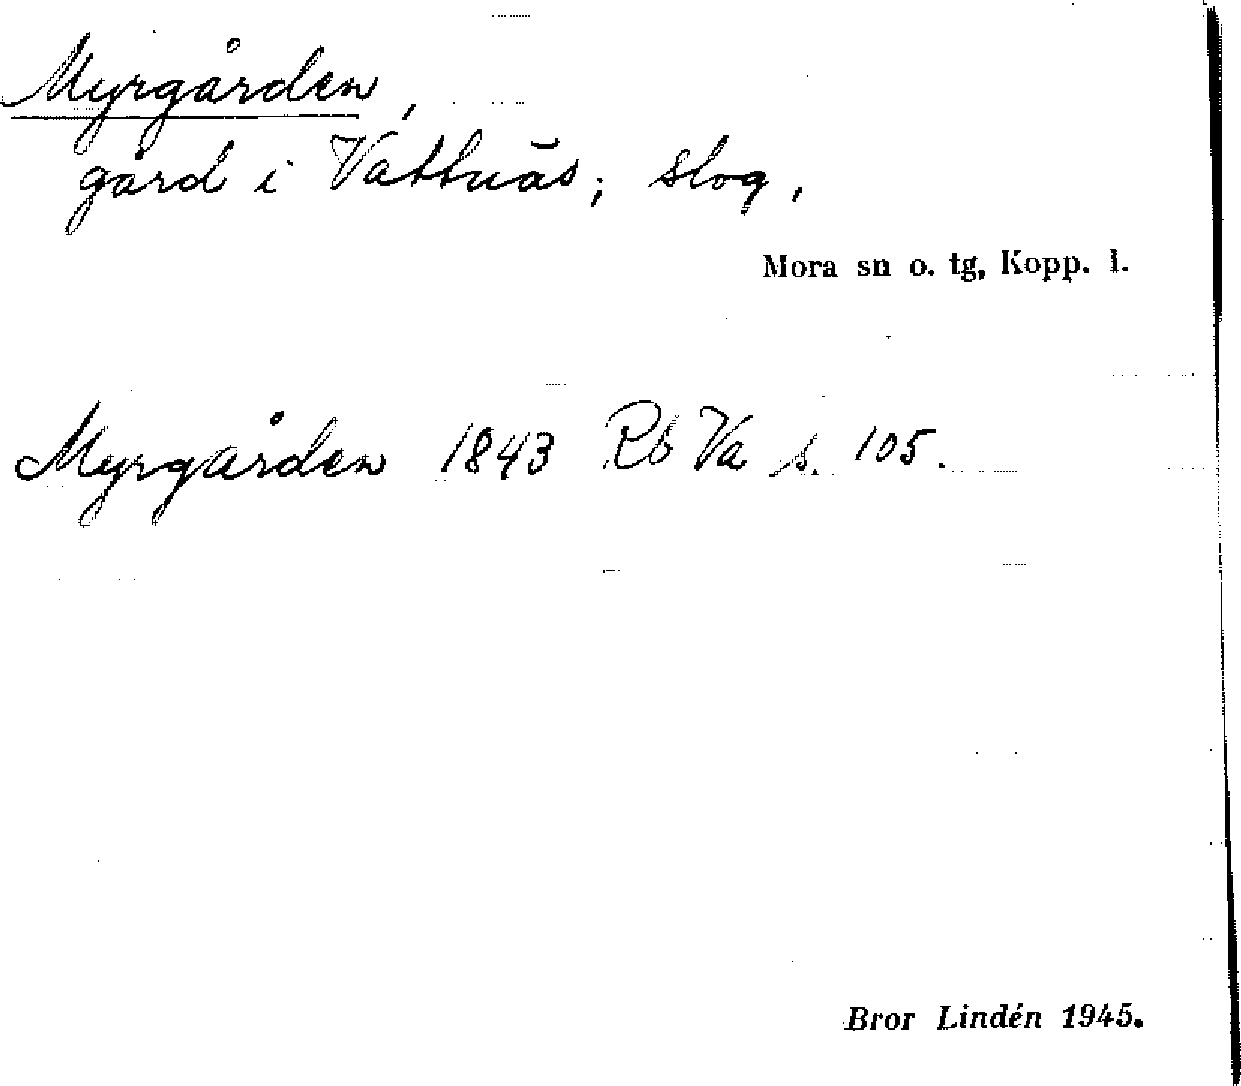 Myrgården,
gård i Vattnäs; slog,
Mora sn o. tg, Kopp. l.
Myrgården 1843 Rb Va s. 105.
Bror Lindén 1945.